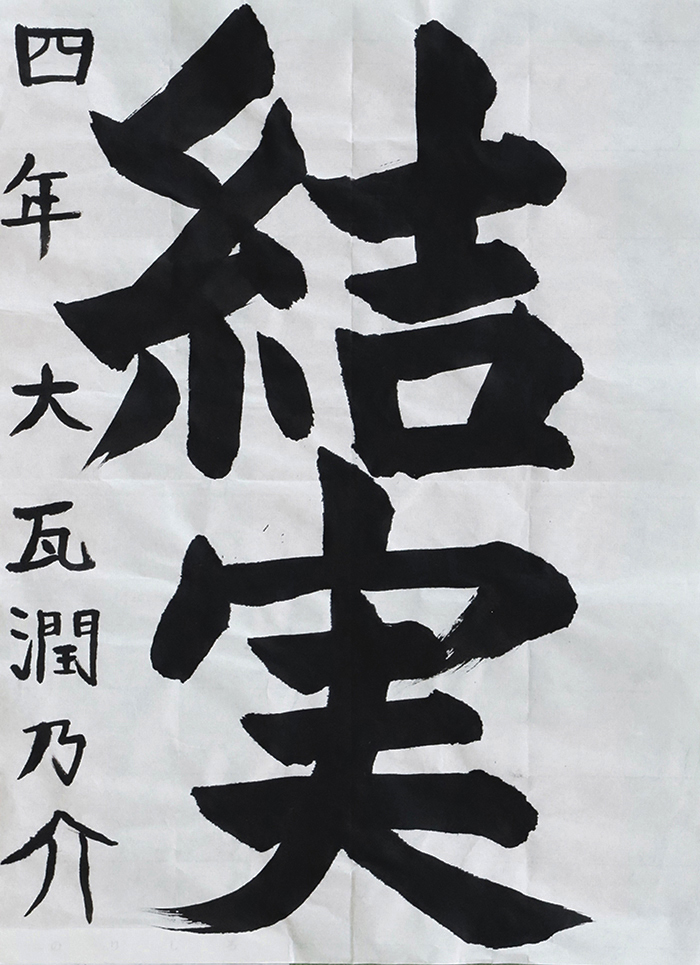 結実
四年 大瓦潤乃介